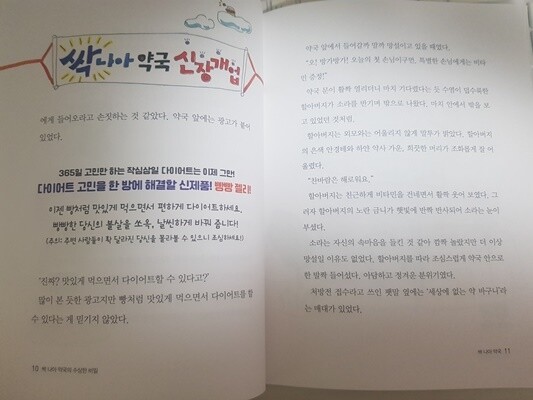 싹 나아 약국 신장개업
에게 들어오라고 손짓하는 것 같았다. 약국 앞에는 광고가 붙어
있었다.
365일 고민만 하는 작심삼일 다이어트는 이제 그만!
다이어트 고민을 한 방에 해결할 신제품! 빵빵 젤리!
이젠 빵처럼 맛있게 먹으면서 편하게 다이어트하세요.
빵빵한 당신의 볼살을 쏘옥, 날씬하게 바꿔 줍니다!
(주의: 주변 사람들이 확 달라진 당신을 몰라볼 수 있으니 조심하세요!)
'진짜? 맛있게 먹으면서 다이어트할 수 있다고?'
많이 본 듯한 광고지만 빵처럼 맛있게 먹으면서 다이어트를 할
수 있다는 게 믿기지 않았다.
10 싹 나아 약국의 수상한 비밀
약국 앞에서 들어갈까 말까 망설이고 있을 때였다.
"오! 방가방가! 오늘의 첫 손님이구먼, 특별한 손님에게는 비타
민 증정!"
약국 문이 활짝 열리더니 마치 기다렸다는 듯 수염이 덥수룩한
할아버지가 소라를 반기며 밖으로 나왔다. 마치 안에서 밖을 보
고 있었던 것처럼.
할아버지는 외모와는 어울리지 않게 말투가 밝았다. 할아버지
의 은색 안경테와 하얀 약사 가운, 희끗한 머리가 조화롭게 잘 어
울렸다.
"찬바람은 해로워요."
할아버지는 친근하게 비타민을 건네면서 활짝 웃어 보였다. 그
러자 할아버지의 노란 금니가 햇빛에 반짝 반사되어 소라는 눈이
부셨다.
소라는 자신의 속마음을 들킨 것 같아 깜짝 놀랐지만 더 이상
망설일 이유도 없었다. 할아버지를 따라 조심스럽게 약국 안으로
한 발짝 들어섰다. 아담하고 정겨운 분위기였다.
처방전 접수라고 쓰인 팻말 옆에는 '세상에 없는 약 바구니'라
는 매대가 있었다.
싹 나아 약국 11